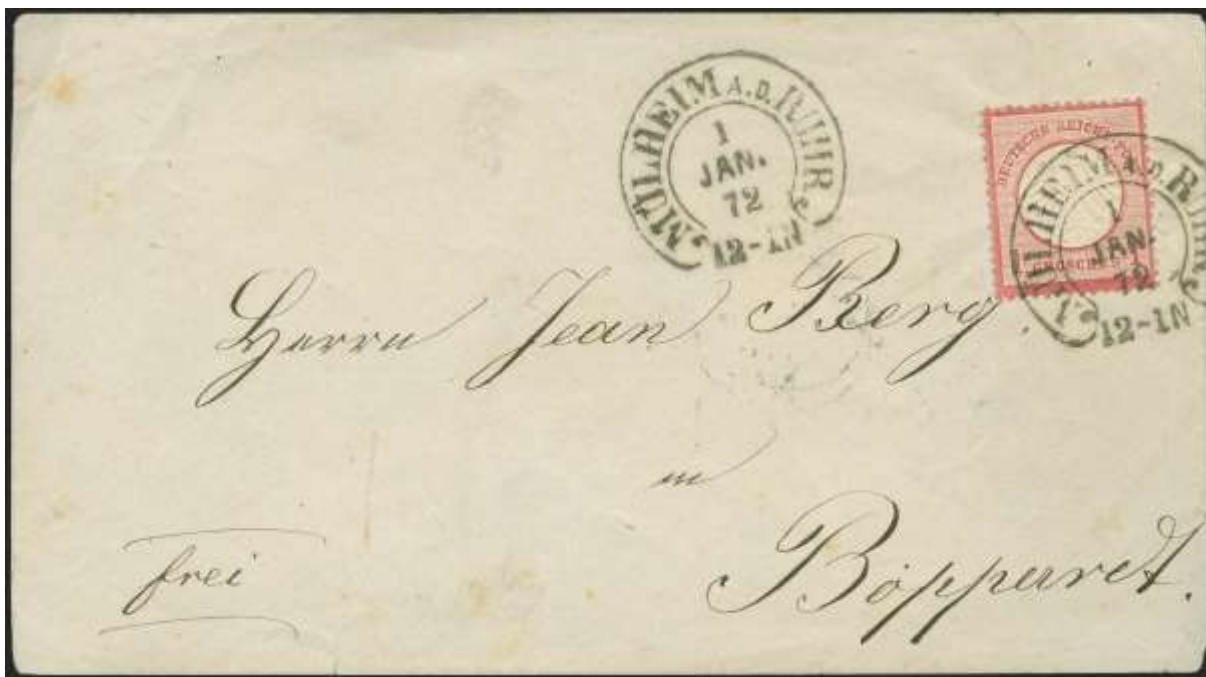 MÜLHEIM A.D. RUHR
1
JAN.
72
12-1N
DEUTSCHE REICHS-POST
GROSCHEN
MÜLHEIM A.D. RUHR
1
JAN.
72
12-1N
Herrn Jean Berg.
in
Boppardt.
frei